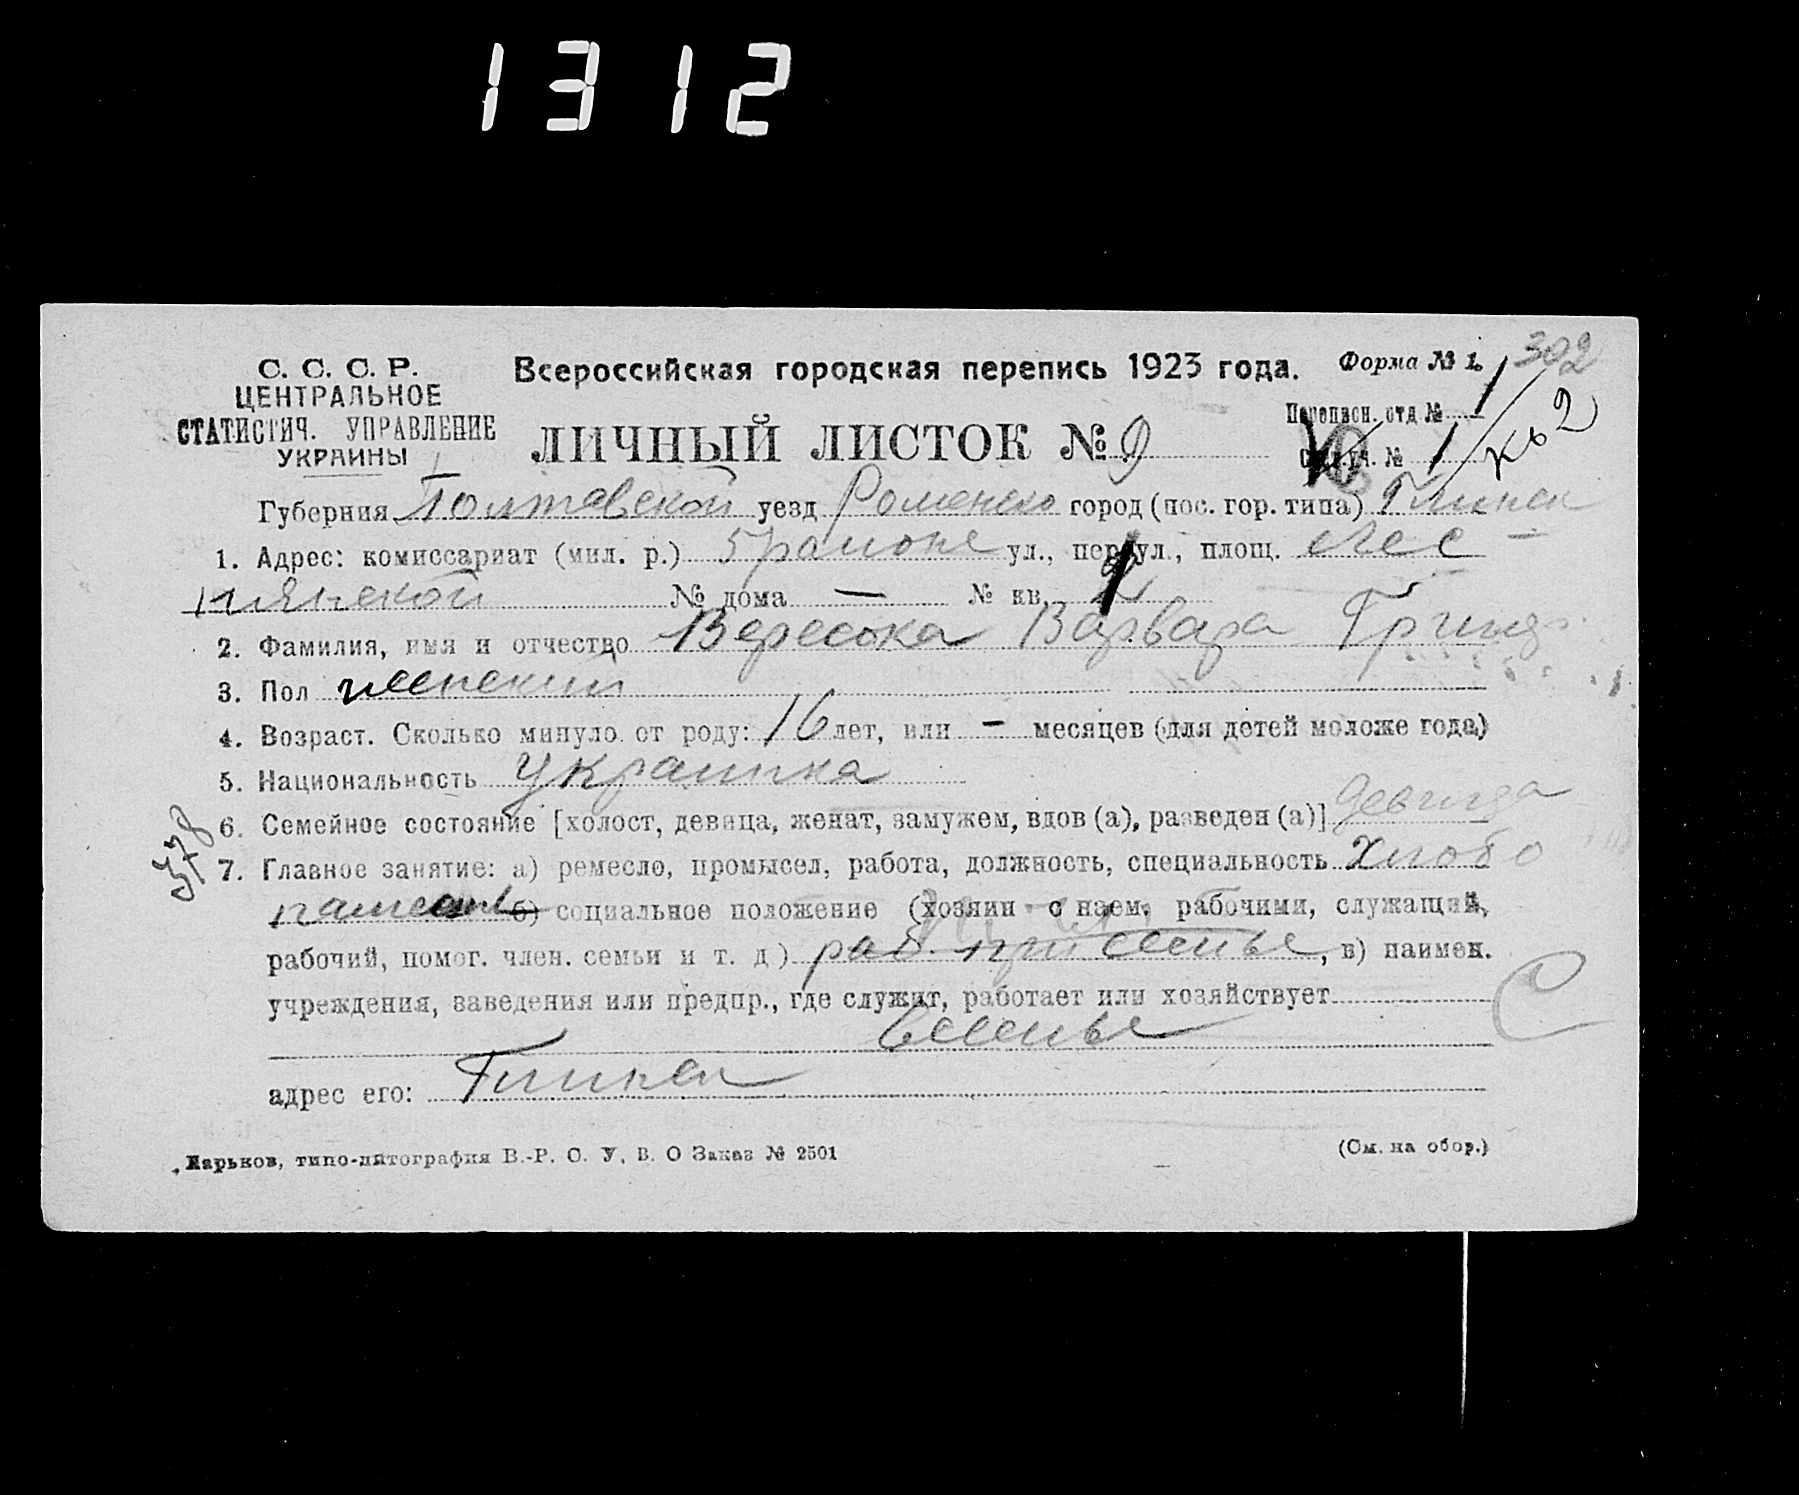 1312
С. С. С. Р.
ЦЕНТРАЛЬНОЕ
СТАТИСТИЧ. УПРАВЛЕНИЕ
УКРАИНЫ
Всероссийская городская перепись 1923 года.
Форма № 1.
302
ЛИЧНЫЙ ЛИСТОК № 9
Переписн. отд № 1
Сч. уч. № 1
Губерния Полтавской уезд Роменско город (пос. гор. типа) Глинск
1. Адрес: комиссариат (мил. р.) 5 районе ул., переул., площ.
№ дома — № кв.
2. Фамилия, имя и отчество Вересока Варвара Григ
3. Пол женский
4. Возраст. Сколько минуло от роду: 16 лет, или - месяцев (для детей моложе года)
5. Национальность Украинка
6. Семейное состояние [холост, девица, женат, замужем, вдов (а), разведен (а)] девица
378
7. Главное занятие: а) ремесло, промысел, работа, должность, специальность хлебо
пашест б) социальное положение (хозяин с наем. рабочими, служащий,
рабочий, помог. член. семьи и т. д) раб. при семье, в) наимен.
учреждения, заведения или предпр., где служит, работает или хозяйствует
С
Семье
адрес его: Глинск
Харьков, типо-литография В.-Р. С. У. В. О Заказ № 2501
(См. на обор.)